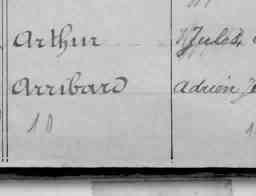 Arthur Jules
Arribard Adrien
10